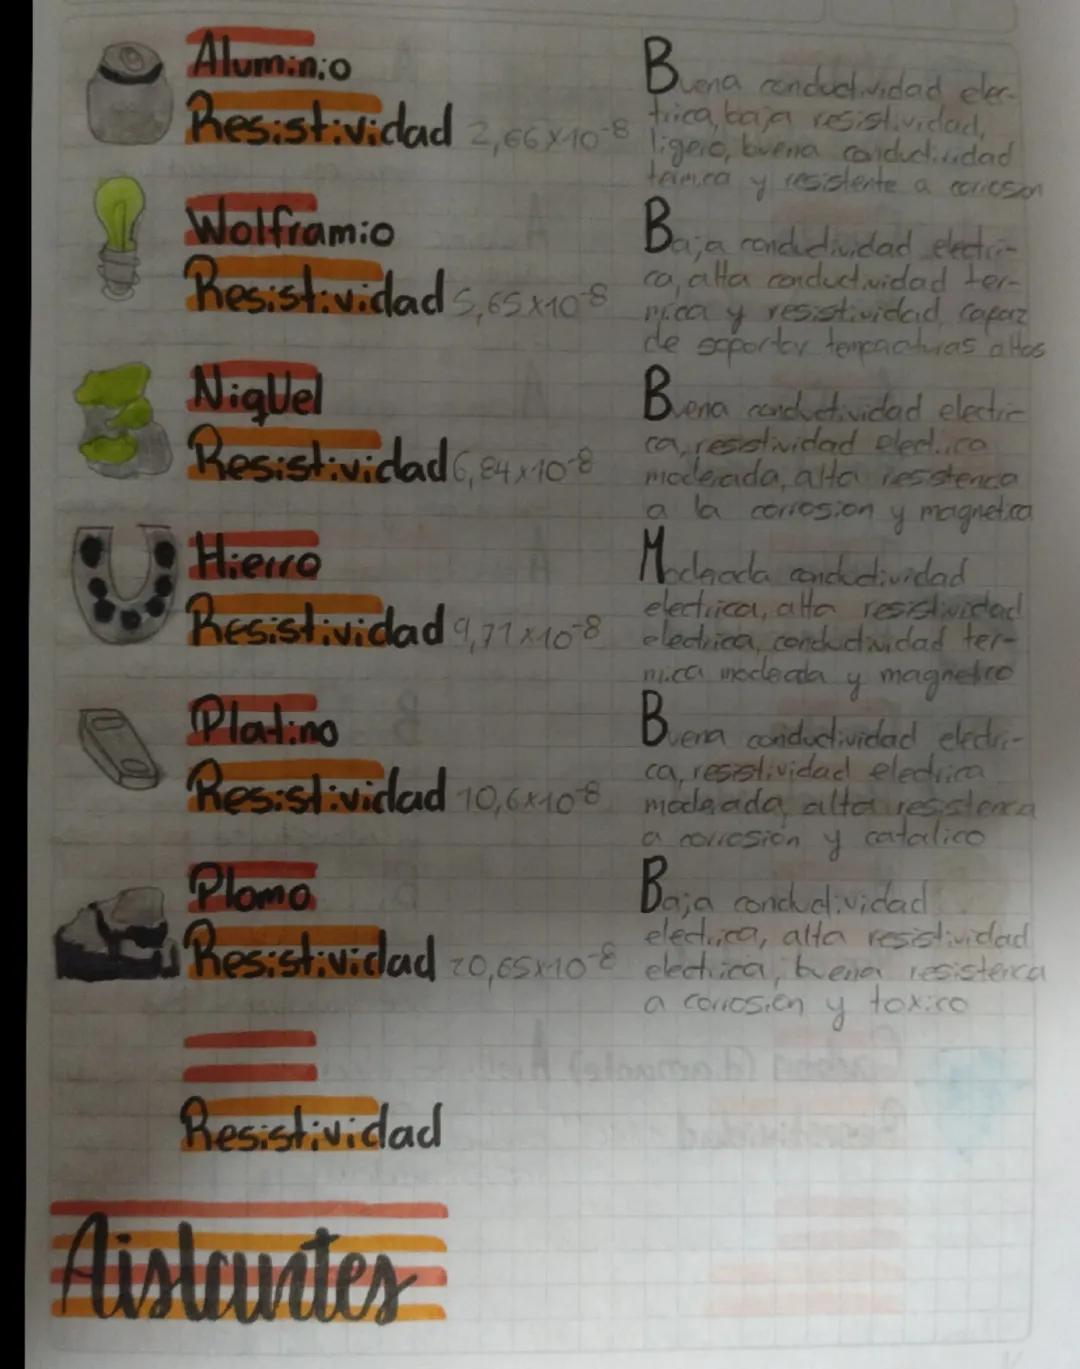 Aluminio
Resistividad 2,66x10-8
Buena conductividad elec-
trica, baja resistividad,
ligero, buena conductividad
termica y resistente a corroson
Wolframio
Resistividad 5,65x10-8
Baja conductividad electri-
ca, alta conductividad ter-
mica y resistividad, capaz
de soportar temperaturas altas
NiqUel
Resistividad 6,84x10-8
Buena conductividad electri-
ca, resistividad electrica
moderada, alta resistencia
a la corrosion y magnetica
Hierro
Resistividad 9,71x10-8
Moderada conductividad
electrica, alta resistividad
electrica, conductividad ter-
mica moderada y magnetico
Platino
Resistividad 10,6x10-8
Buena conductividad electri-
ca, resistividad electrica
moderada, alta resistencia
a corrosion y catalico
Plomo
Resistividad 20,65x10-8
Baja conductividad
electrica, alta resistividad
electrica, buena resistencia
a corrosion y toxico
Resistividad
Aislantes